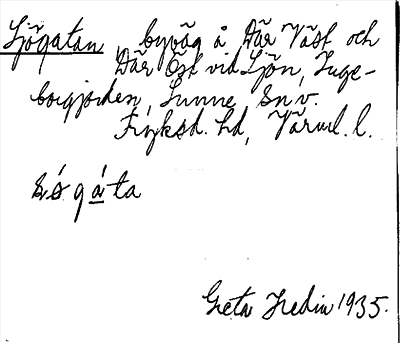 Sjögatan byväg å Där Väst och
Där Öst vid Sjön, Inge-
borgjorden, Sunne, Sn.v.
Fryksd. hd, Värml. l.
gáta
Greta Hedin 1935.